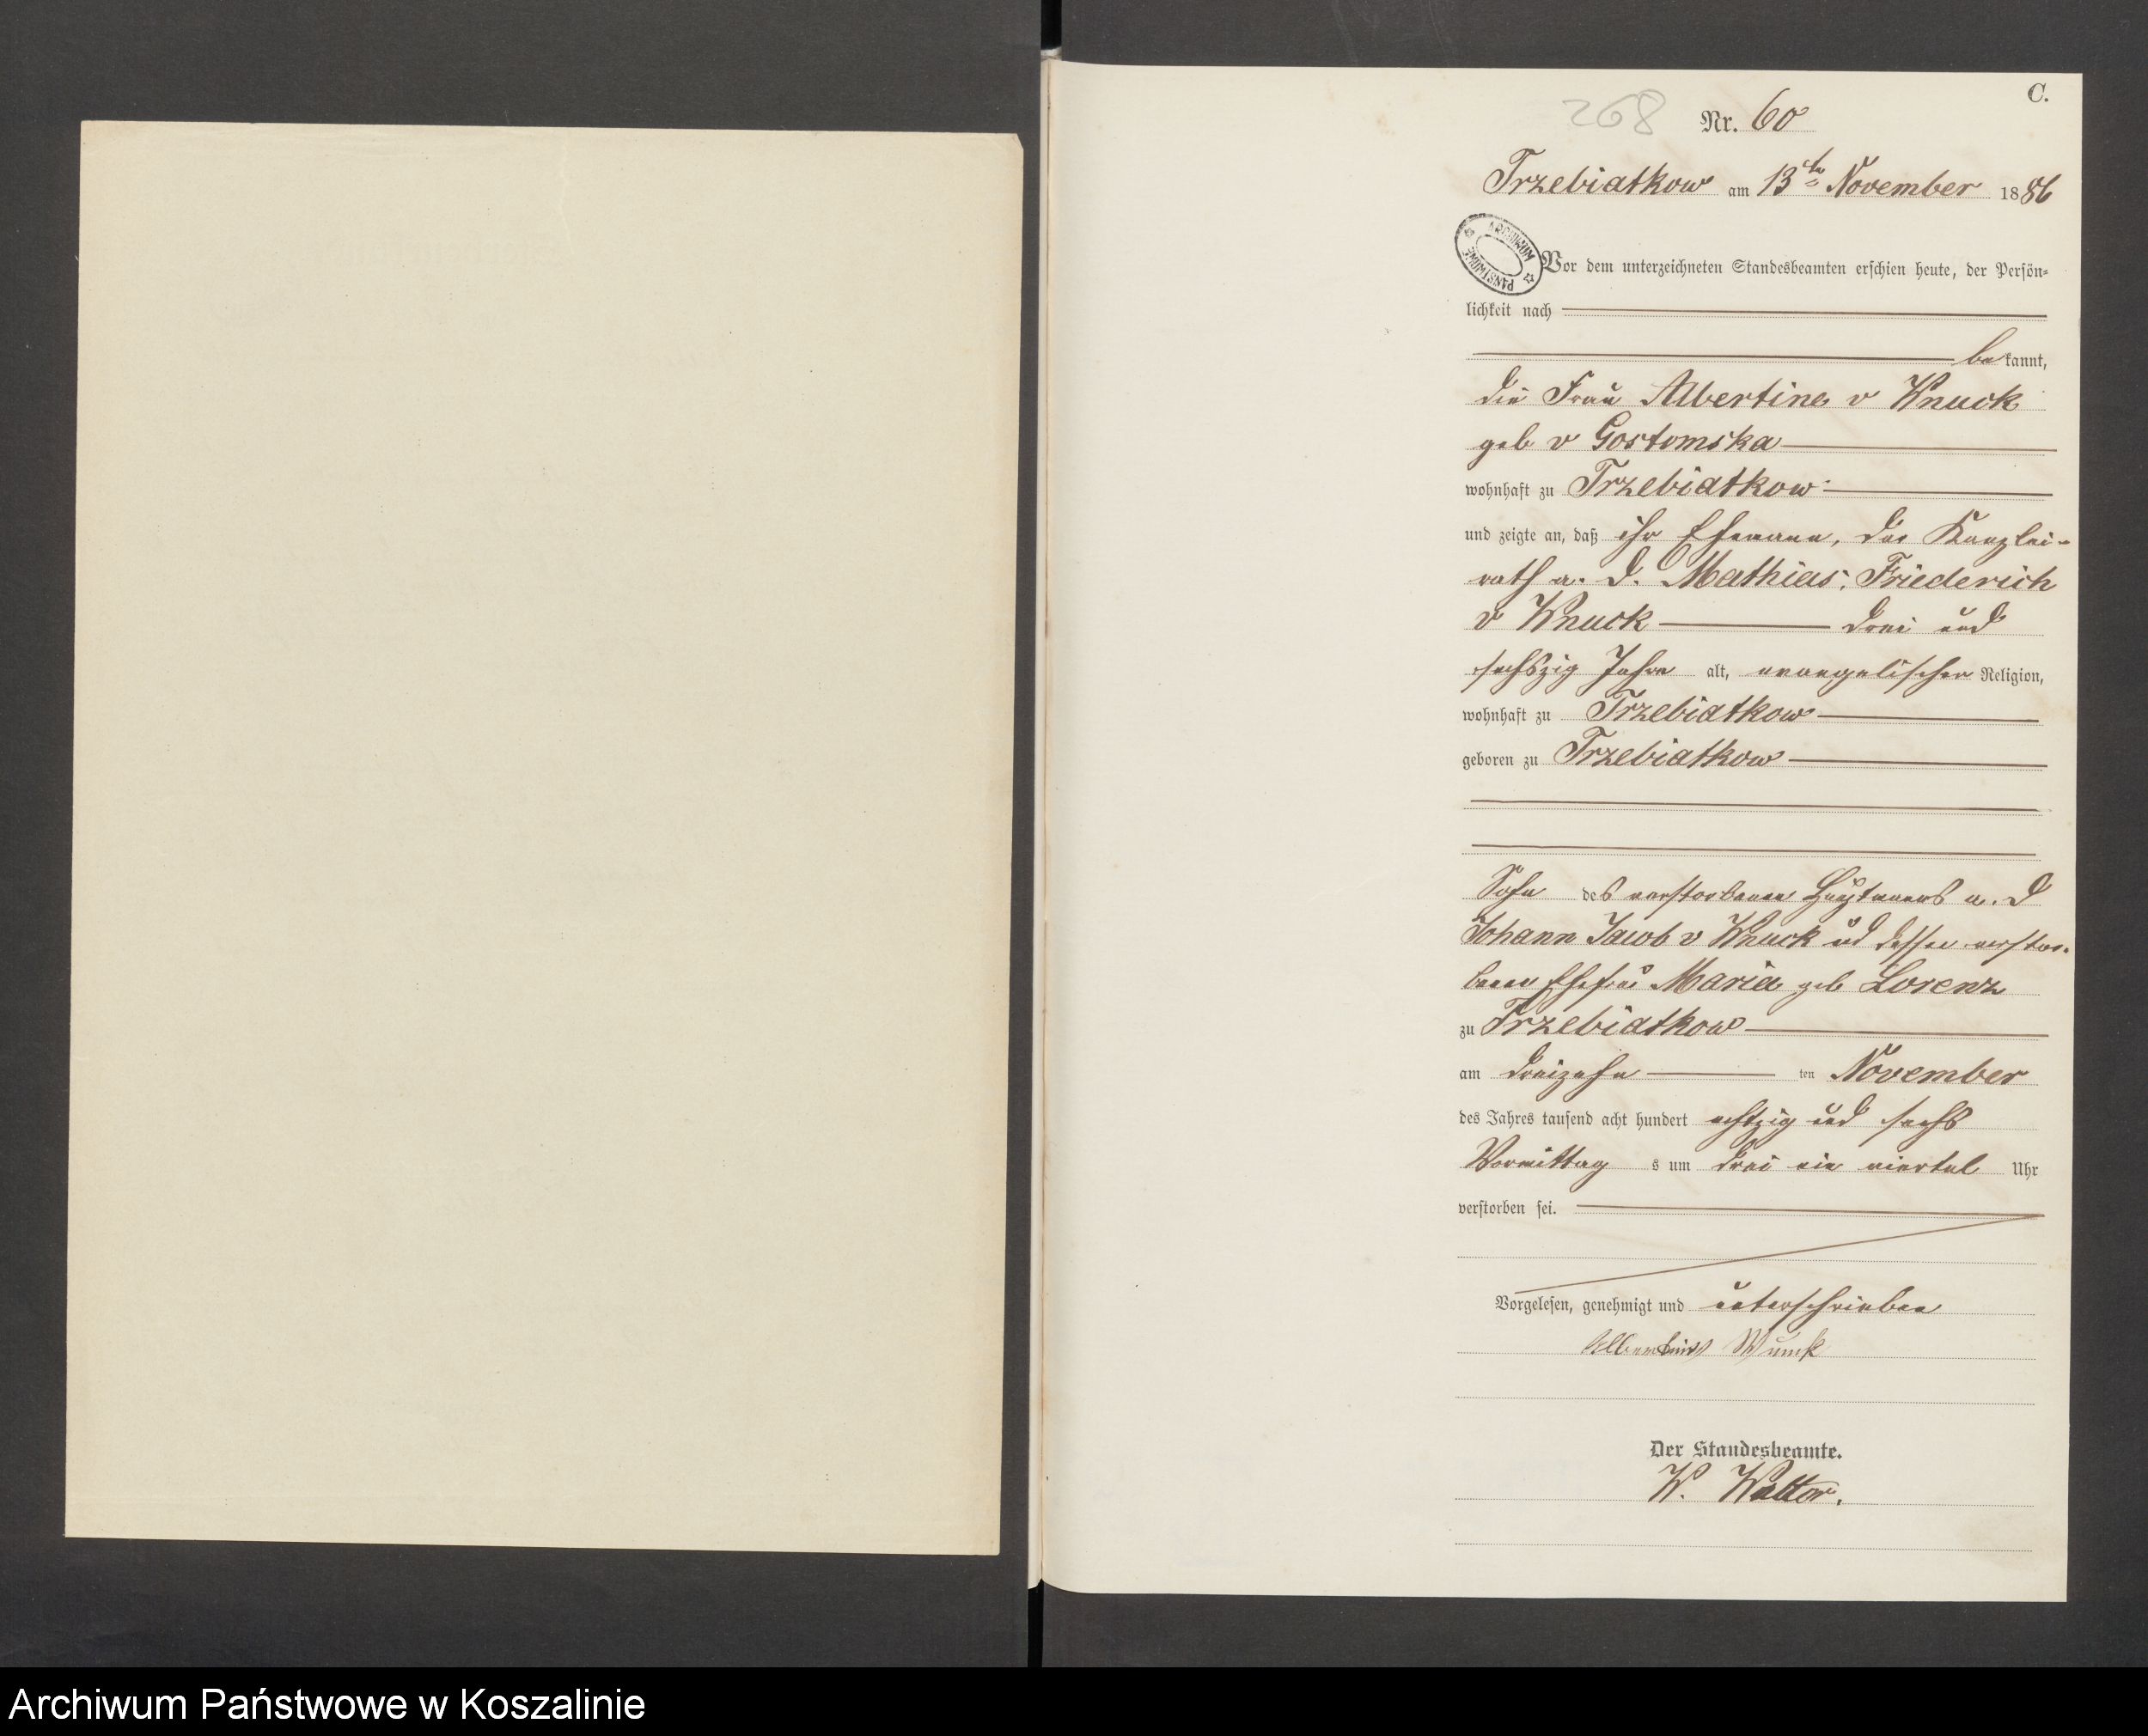 C.
268
Nr. 60
Trzebiatkow am 13ten November 1886
ARCHIWUM PAŃSTWOWE
Vor dem unterzeichneten Standesbeamten erschien heute, der Persön-
lichkeit nach
bekannt,
die Frau Albertine v Wnuck
geb v Gostomska
wohnhaft zu Trzebiatkow
und zeigte an, daß ihr Ehemann, der Kanzlei-
rath a. D. Mathias, Friederich
v Wnuck drei und
sechszig Jahre alt, evangelischer Religion,
wohnhaft zu Trzebiatkow
geboren zu Trzebiatkow
Sohn des verstorbenen Hauptmanns a. D
Johann Jacob v Wnuck und dessen verstor-
benen Ehefrau Maria geb Lorenz
zu Trzebiatkow
am dreizehn ten November
des Jahres tausend acht hundert achtzig und sechs
Vormittags um drei ein viertel Uhr
verstorben sei.
Vorgelesen, genehmigt und unterschrieben
Albertine Wnuck
Der Standesbeamte.
W. Walter.
Archiwum Państwowe w Koszalinie